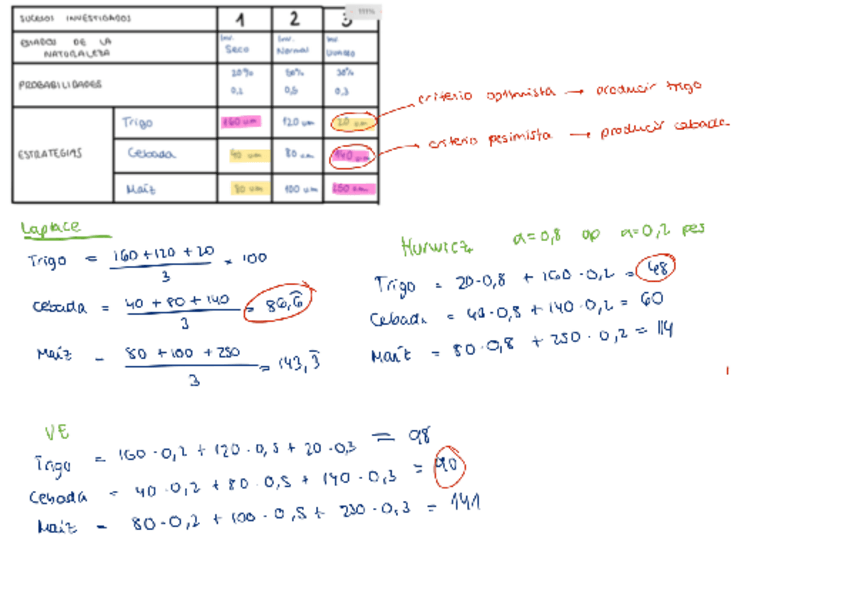 SUCESOS INVESTIGADOS 1 2 3
ESTADOS DE LA NATURALEZA Inv. Seco Inv. Normal Inv.
PROBABILIDADES 20% 50% 30%
0,2 0,5 0,3
ESTRATEGIAS
Trigo 160 um 120 um 20 um
Cebada 40 um 80 um 140 um
Maíz 80 um 100 um 250 um
criterio optimista → producir trigo
criterio pesimista → producir cebada
Laplace
Trigo = 160 + 120 + 20 / 3 = 100
Cebada = 40 + 80 + 140 / 3 = 86,6
Maíz = 80 + 100 + 250 / 3 = 143,3
Hurwicz a=0,8 op a=0,2 pes
Trigo = 20·0,8 + 160·0,2 = 48
Cebada = 40·0,8 + 140·0,2 = 60
Maíz = 80·0,8 + 250·0,2 = 114
VE
Trigo = 160·0,2 + 120·0,5 + 20·0,3 = 98
Cebada = 40·0,2 + 80·0,5 + 140·0,3 = 90
Maíz = 80·0,2 + 100·0,5 + 250·0,3 = 141